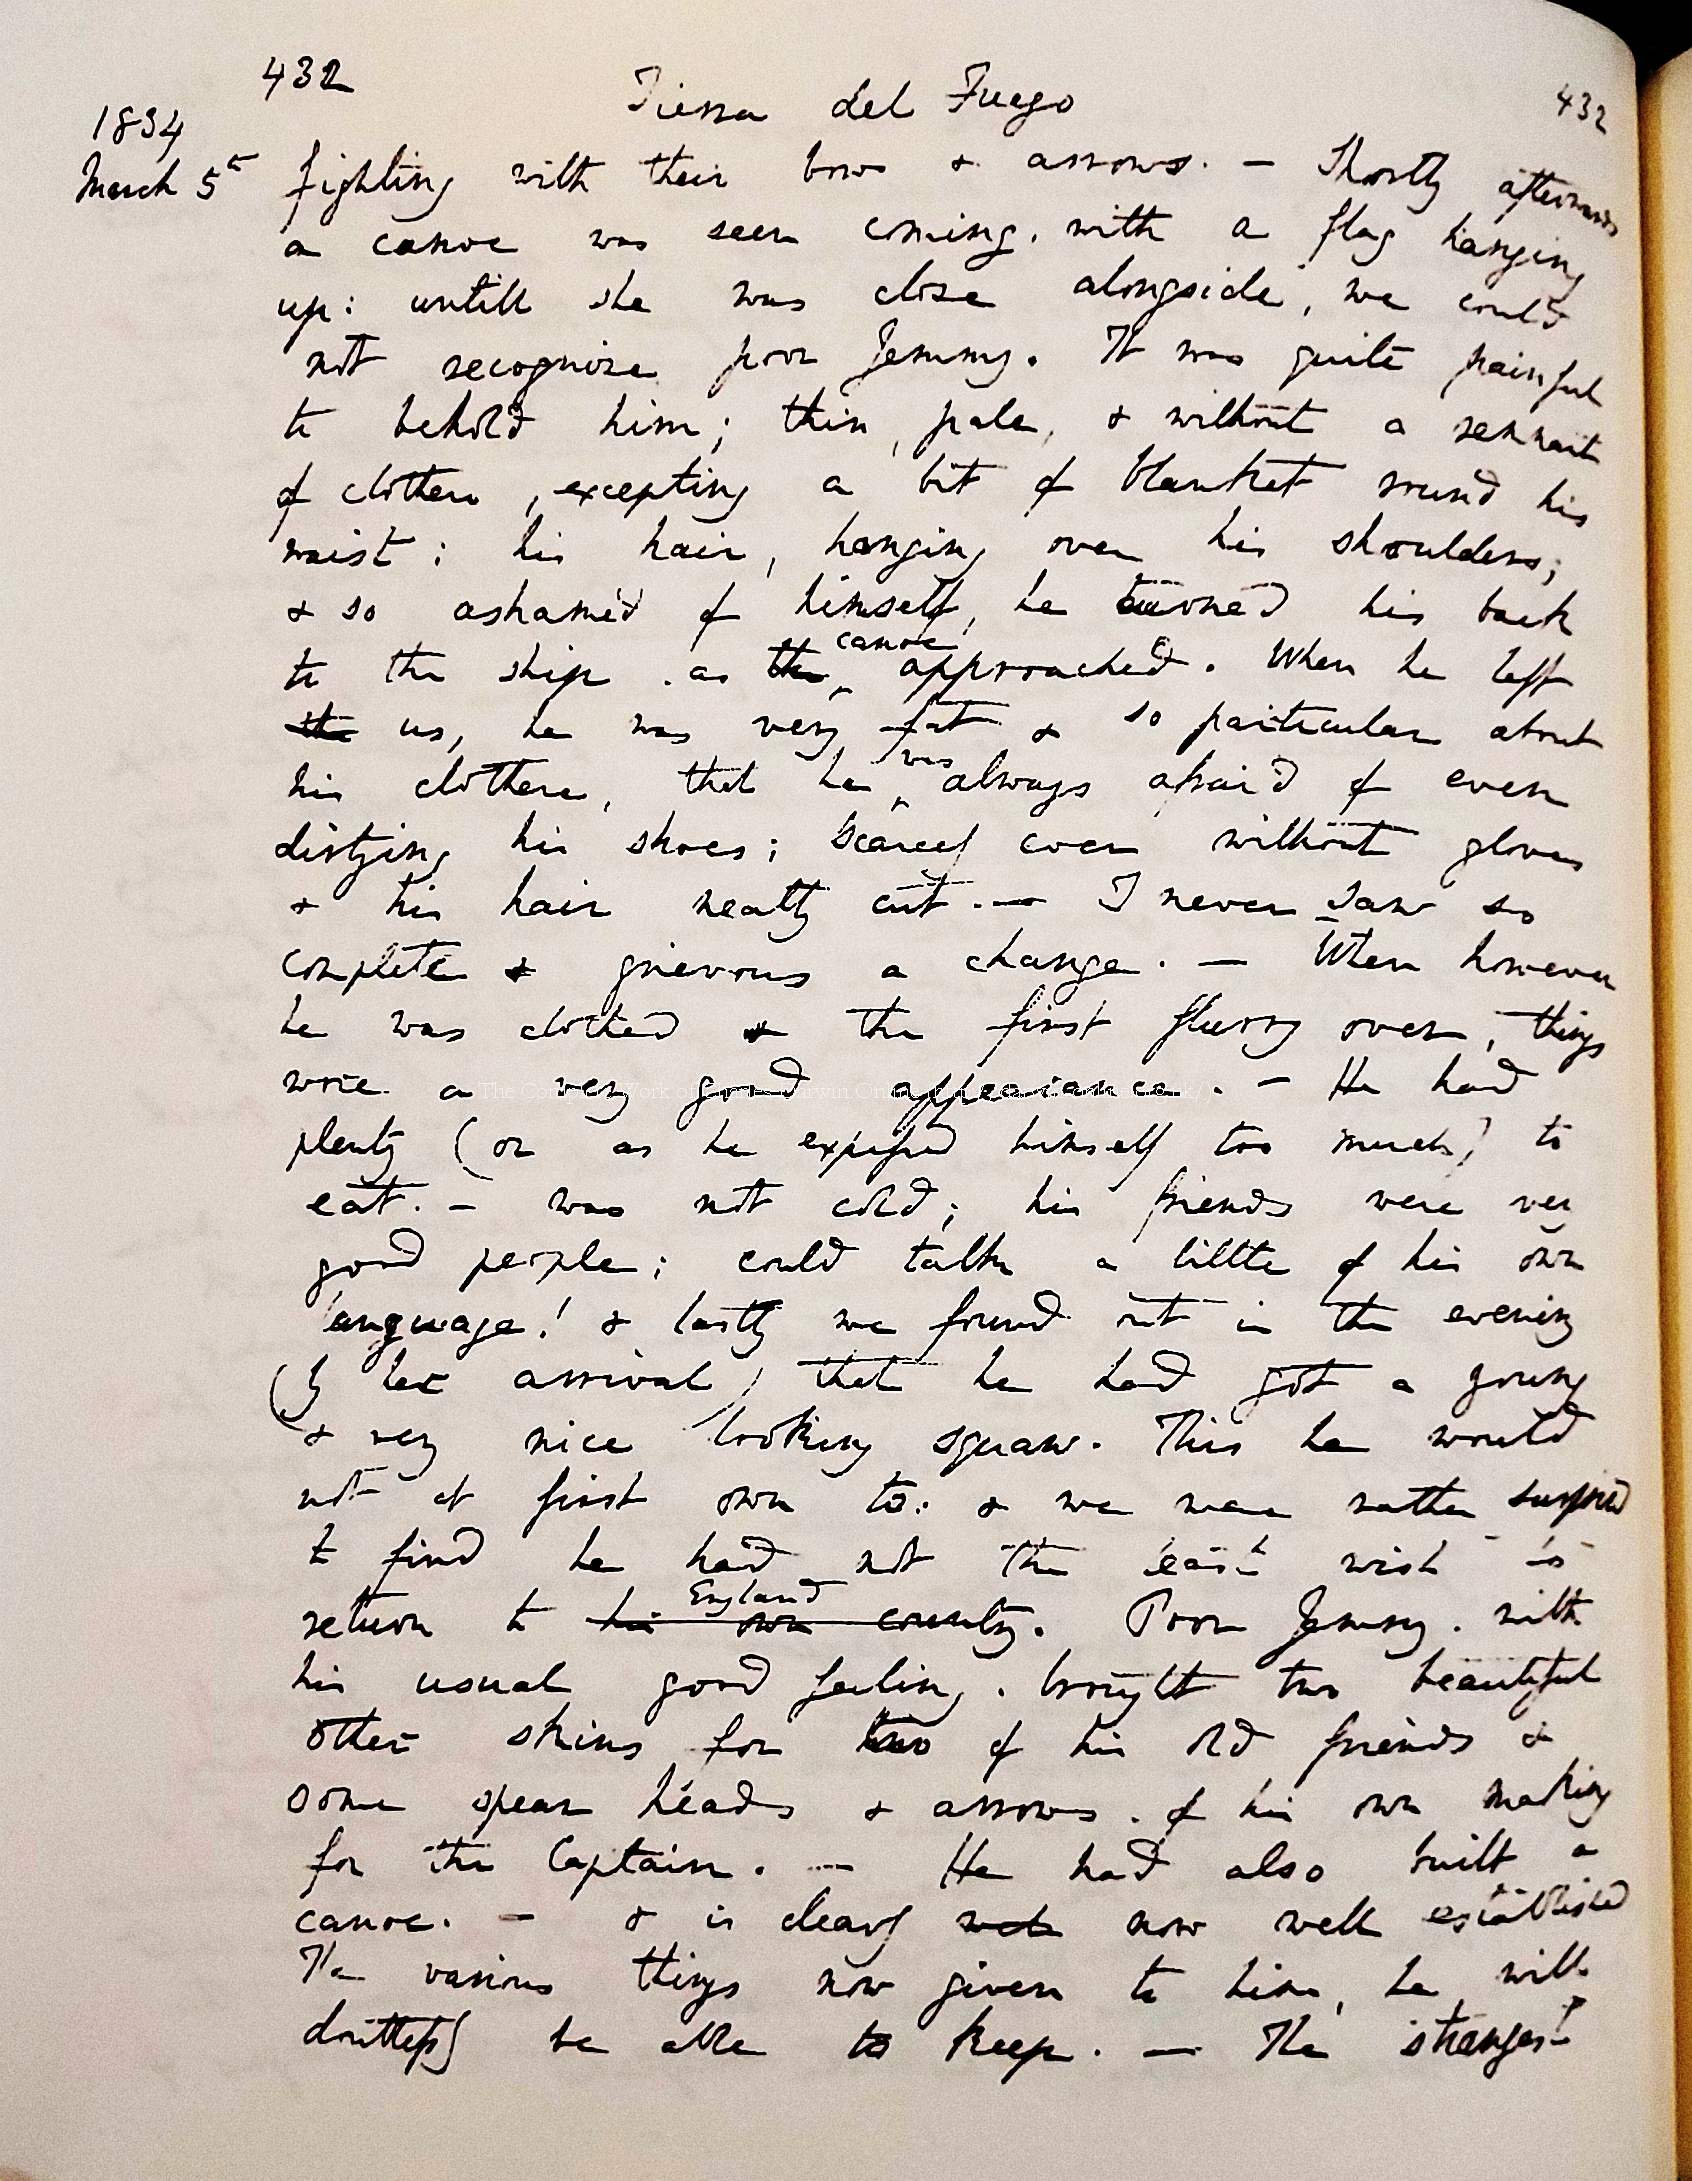 432 Tierra del Fuego 432
1834
March 5th fighting with their bows & arrows. — Shortly afterwards
a canoe was seen coming, with a flag hanging
up: untill she was close alongside, we could
not recognise poor Jemmy. It was quite painful
to behold him; thin, pale, & without a remnant
of clothes, excepting a bit of blanket round his
waist: his hair, hanging over his shoulders;
& so ashamed of himself, he turned his back
to the ship as the canoe approached. When he left
the us, he was very fat & so particular about
his clothes, that he was always afraid of even
dirtying his shoes; scarcely ever without gloves
& his hair neatly cut. — I never saw so
complete & grievous a change. — When however
he was clothed & the first flurry over, things
wore a very good appearance. — He had
plenty (or as he expressed himself too much) to
eat. — was not cold; his friends were very
good people; could talk a little of his own
language! & lastly we found out in the evening
(by her arrival) that he had got a young
& very nice looking squaw. This he would
not at first own to: & we were rather surprised
to find he had not the least wish to
return to his own country England. Poor Jemmy. with
his usual good feeling. brought two beautiful
otter skins for two of his old friends &
some spear heads & arrows. of his own making
for the Captain. — He had also built a
canoe. — & is clearly now well established
The various things now given to him, he will
doubtless be able to keep. — The strangest